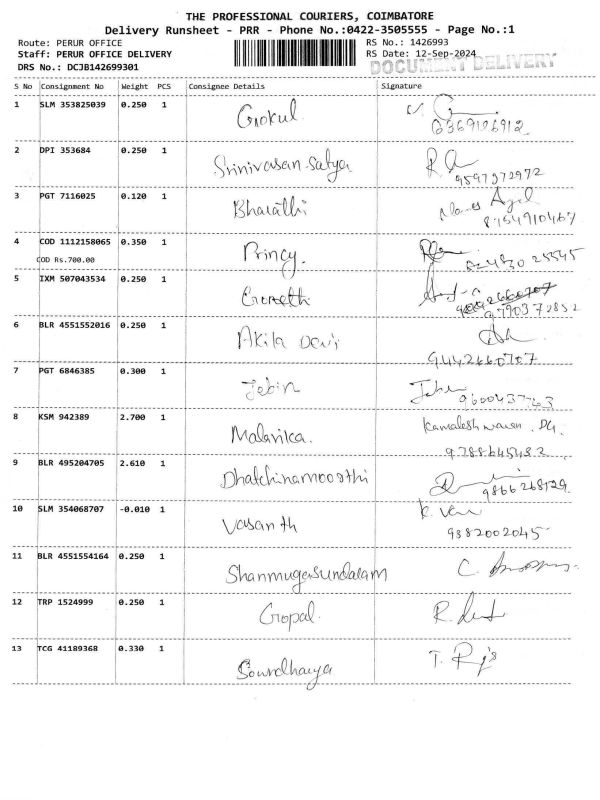 THE PROFESSIONAL COURIERS, COIMBATORE
Delivery Runsheet - PRR - Phone No.:0422-3505555 - Page No.:1
Route: PERUR OFFICE RS No.: 1426993
Staff: PERUR OFFICE DELIVERY RS Date: 12-Sep-2024
DOCUMENT DELIVERY
DRS No.: DCJB142699301
S No Consignment No Weight PCS Consignee Details Signature
1 SLM 353825039 0.250 1 Gokul
6369126912
2 DPI 353684 0.250 1 Srinivasan Satya
9597372972
3 PGT 7116025 0.120 1 Bharathi
8754910467
4 COD 1112158065 0.350 1 Princy
COD Rs.700.00
5 IXM 507043534 0.250 1
9790372852
6 BLR 4551552016 0.250 1 Akila Devi
9442660707
7 PGT 6846385 0.300 1 Jebin
9600437763
8 KSM 942389 2.700 1 Malavika. Kamaleshwaran .DG.
9788645482
9 BLR 495204705 2.610 1 Dhatchinamoorthi
9866268129
10 SLM 354068707 -0.010 1 Vasanth
9382002045
11 BLR 4551554164 0.250 1 Shanmugasundaram
12 TRP 1524999 0.250 1 Gopal.
13 TCG 41189368 0.330 1 Soundharya